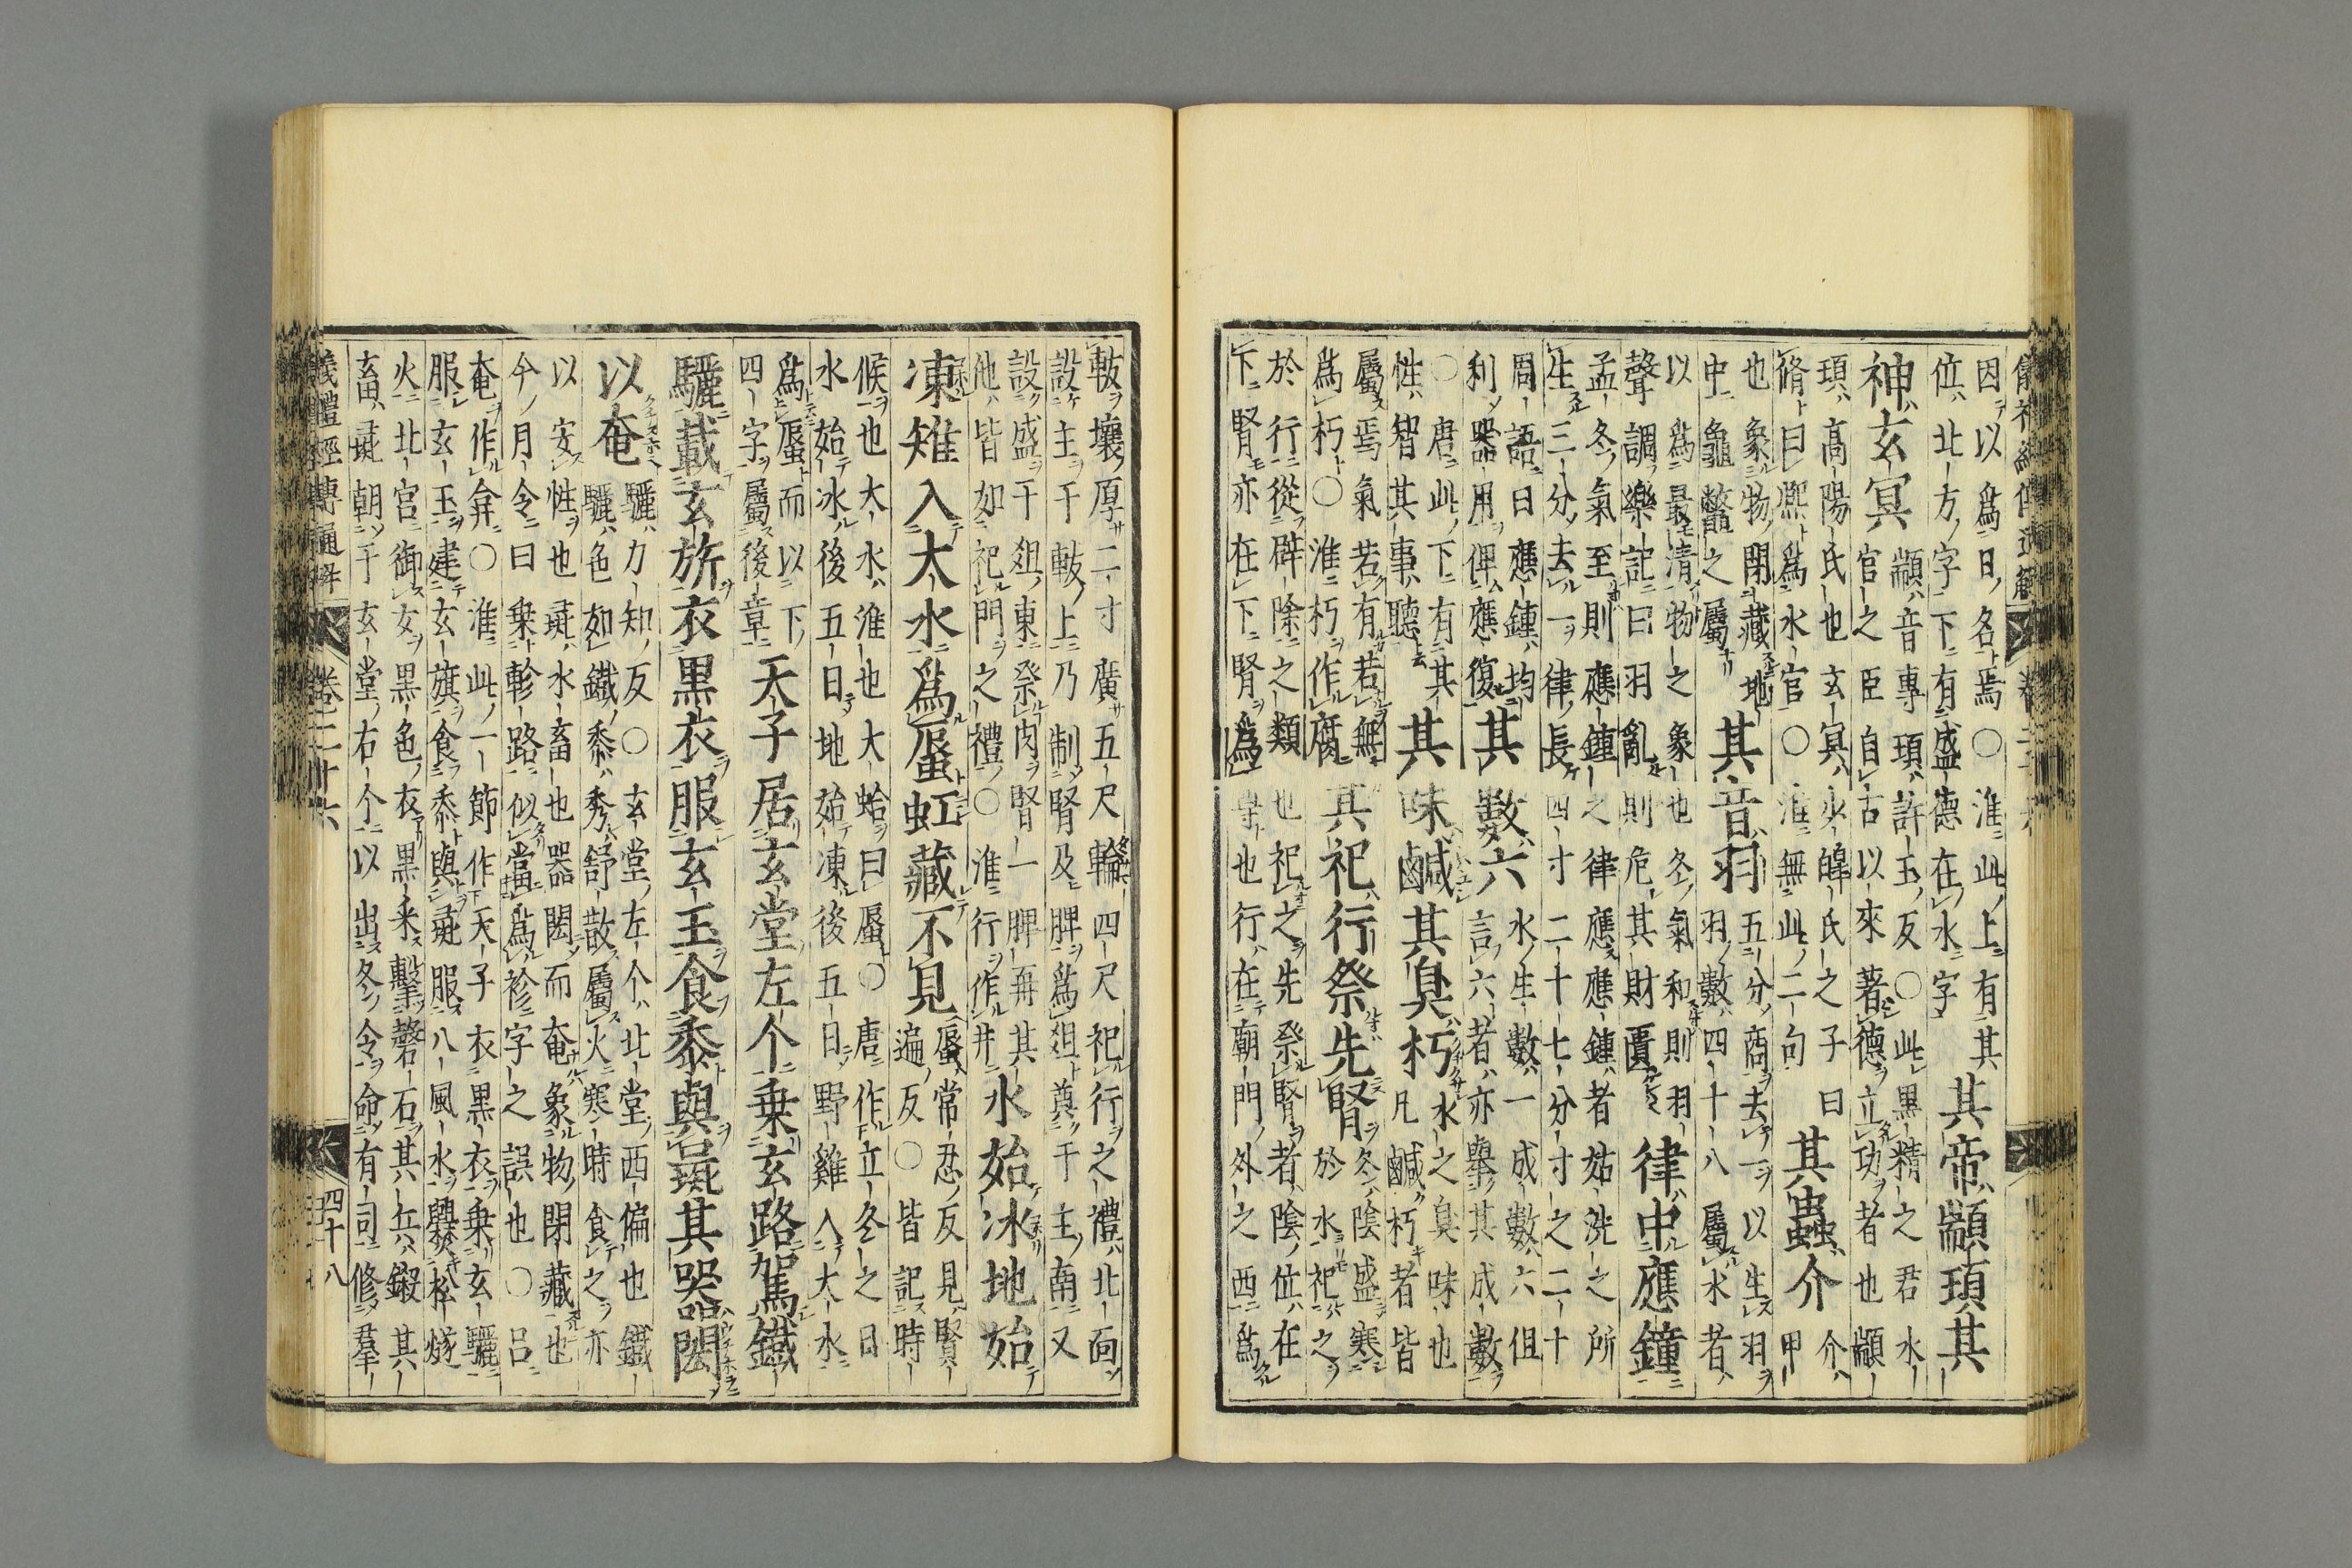 因以爲日名焉〇淮此上有其
位北方字下有盛德在水字
其帝顓頊其
神玄冥
顓音專頊許玉反〇此黒精之君水
官之臣自古以來著德立功者也顓
頊高陽氏也玄冥少皥氏之子曰
脩曰熙爲水官〇淮無此二句
其蟲介
介
甲
也象物閉藏地
中龜鼈之屬
其音羽
五分商去一以生羽
羽數四十八屬水者
以爲最清物之象也冬氣和則羽
聲調樂記曰羽亂則危其財匱
律中應鐘
孟冬氣至則應鐘之律應應鐘者姑洗之所
生三分去一律長四寸二十七分寸之二十
周語曰應鍾均
利器用俾應復
其數六
水生數一成數六但
言六者亦舉其成數
〇唐此下有其
性智其事聽
其味鹹其臭朽
水之臭味也
凡鹹朽者皆
屬焉氣若有若無
爲朽〇淮朽作腐
其祀行祭先腎
冬陰盛寒
於水祀之
於行從辟除之類也祀之先祭腎者陰位在
下腎亦在下腎爲尊也行在廟門外之西爲
軷壤厚二寸廣五尺輪四尺祀行之禮北面
設主于軷上乃制腎及脾爲俎奠于主南又
設盛于俎東祭肉腎一脾再其
他皆如祀門之禮〇淮行作井
水始冰地始
凍雉入大水爲蜃虹藏不見
蜃常忍反見賢
遍反〇皆記時
候也大水淮也大蛤曰蜃〇唐作立冬之日
水始冰後五日地始凍後五日野雞入大水
爲蜃而以下
四字屬後章
天子居玄堂左个乗玄路駕鐵
驪載玄旂衣黒衣服玄玉食黍與彘其器閎
以奄
驪力知反〇玄堂左个北堂西偏也鐵
驪色如鐵黍秀舒散屬火寒時食之亦
以安性也彘水畜也器閎而奄象物閉藏也
今月令曰乗軫路似當爲袗字之誤也〇呂
奄作弇〇淮此一節作天子衣黒衣乗玄驪
服玄玉建玄旗食黍與彘服八風水爨松燧
火北宮御女黒色衣黒采擊磬石其兵鎩其
畜彘朝于玄堂右个以出冬令命有司修羣
儀禮經傳通解 卷二十六 四十八